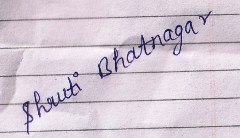 Shruti Bhatnagar